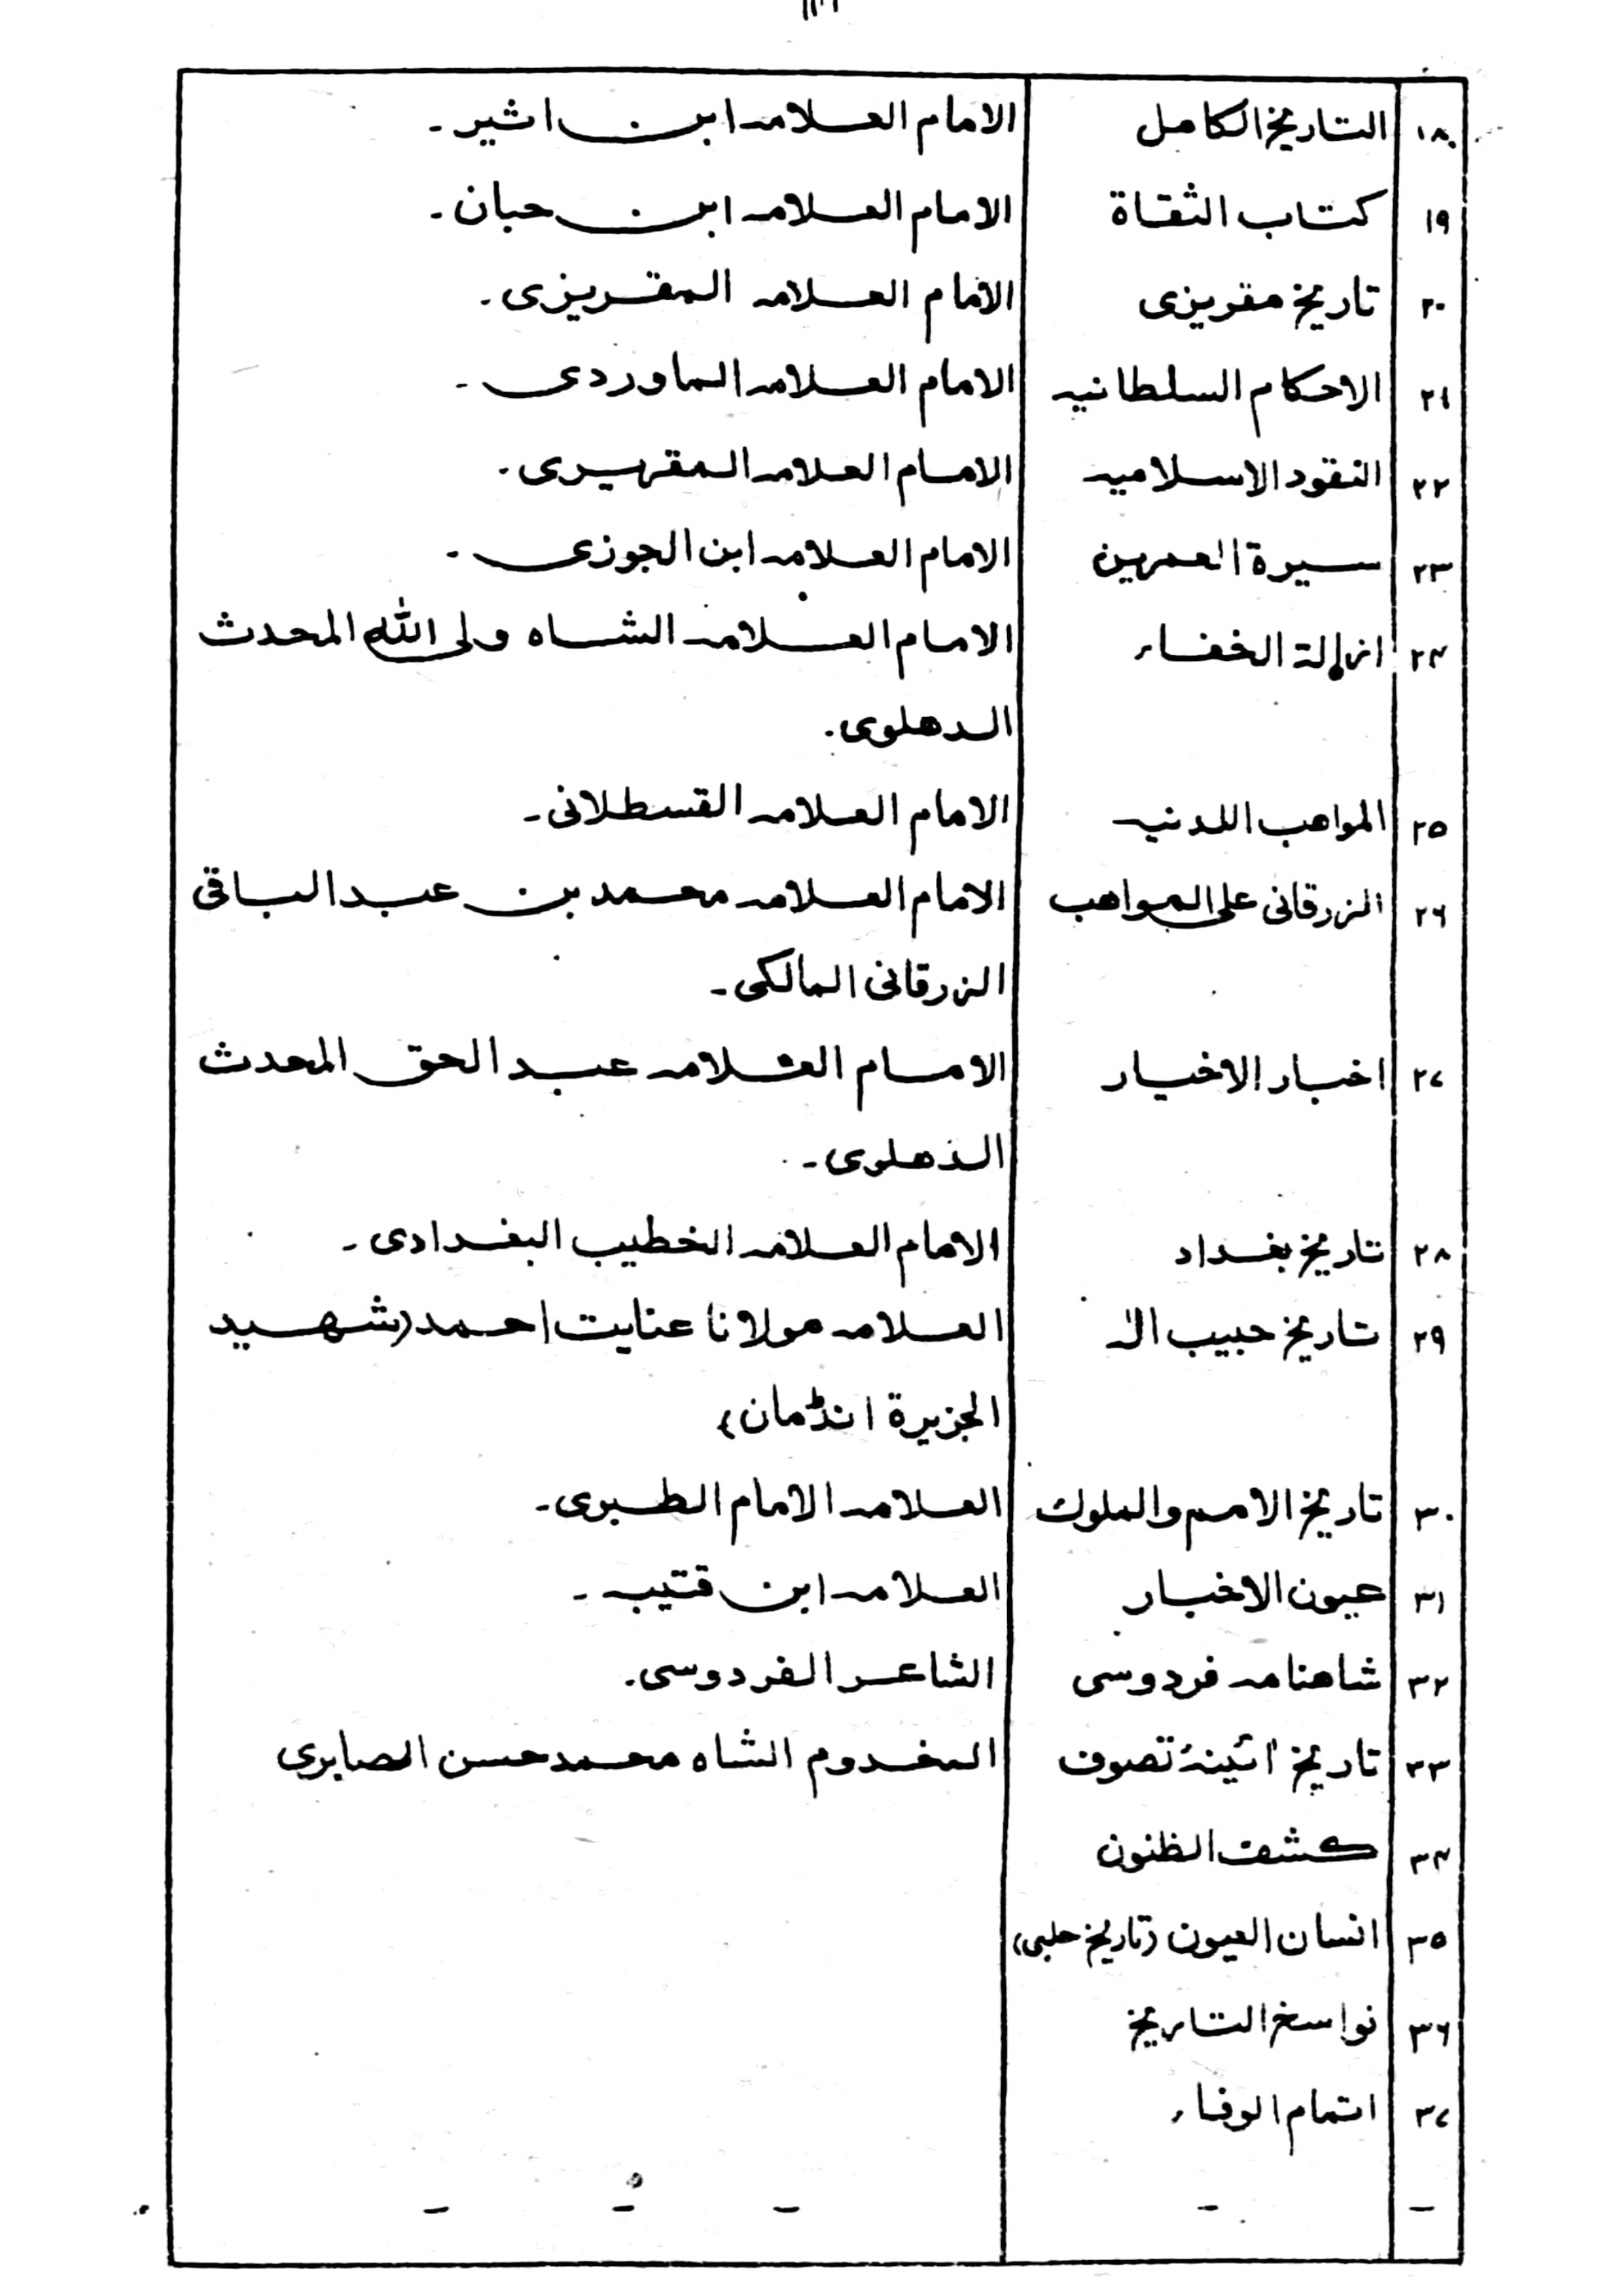 ۱۸ التاریخ الکامل الامام العلامہ ابن اثیر۔
۱۹ کتاب الثقاۃ الامام العلامہ ابن حبان۔
۲۰ تاریخ مقریزی الامام العلامہ المقریزی۔
۲۱ الاحکام السلطانیہ الامام العلامہ الماوردی۔
۲۲ النقود الاسلامیہ الامام العلامہ المقریری۔
۲۳ سیرۃ العمرین الامام العلامہ ابن الجوزی۔
۲۴ ازالۃ الخفاء الامام العلامہ الشاہ ولی اللہ المحدث
الدھلوی۔
۲۵ المواھب اللدنیہ الامام العلامہ القسطلانی۔
۲۶ الزرقانی علی المواھب الامام العلامہ محمد بن عبدالباقی
الزرقانی المالکی۔
۲۷ اخبار الاخیار الامام العلامہ عبد الحق المحدث
الدھلوی۔
۲۸ تاریخ بغداد الامام العلامہ الخطیب البغدادی۔
۲۹ تاریخ حبیب الٰہ العلامہ مولانا عنایت احمد (شھید
الجزیرۃ انڈمان)
۳۰ تاریخ الامم والملوک العلامہ الامام الطبری۔
۳۱ عیون الاخبار العلامہ ابن قتیبہ۔
۳۲ شاھنامہ فردوسی الشاعر الفردوسی۔
۳۳ تاریخ ائینۂ تصوف المخدوم الشاہ محمد حسن الصابری
۳۴ کشف الظنون
۳۵ انسان العیون (تاریخ حلبی)
۳۶ نواسخ التاریخ
۳۷ اتمام الوفاء